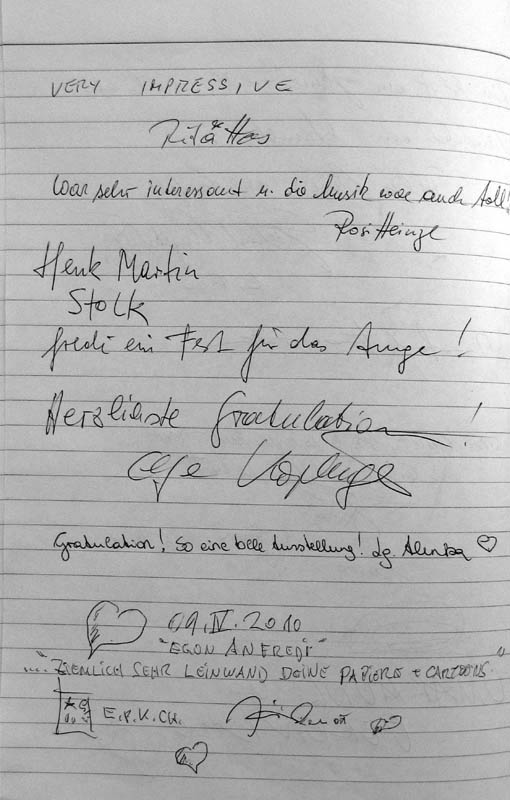 VERY IMPRESSIVE
Rita Has
War sehr interessant u. die Musik war auch toll!
Rosi Heinze
Henk Martin
Stolk
fredi ein Fest für das Auge!
Herzlichste Gratulation!
Gratulation! So eine tolle Ausstellung! lg. Alenka
09.IV.2010
"EGON AN FREDI"
.... "ZIEMLICH SEHR LEINWAND DEINE PAPIERE + CARTOONS."
E.P.K.CH.